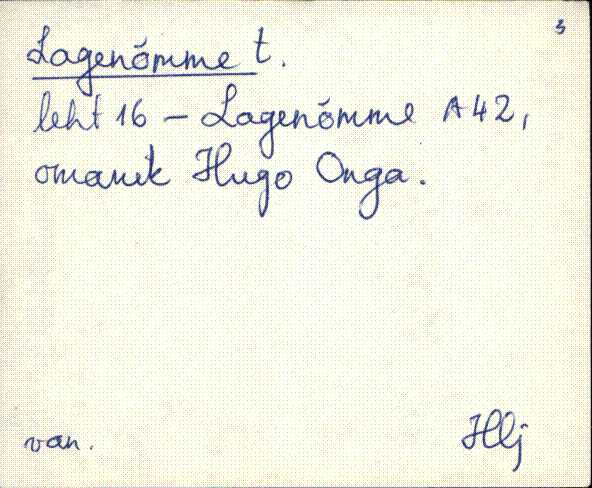 3
Lagenõmme t.
leht 16 – Lagenõmme A42,
omanik Hugo Onga.
van. Hlj